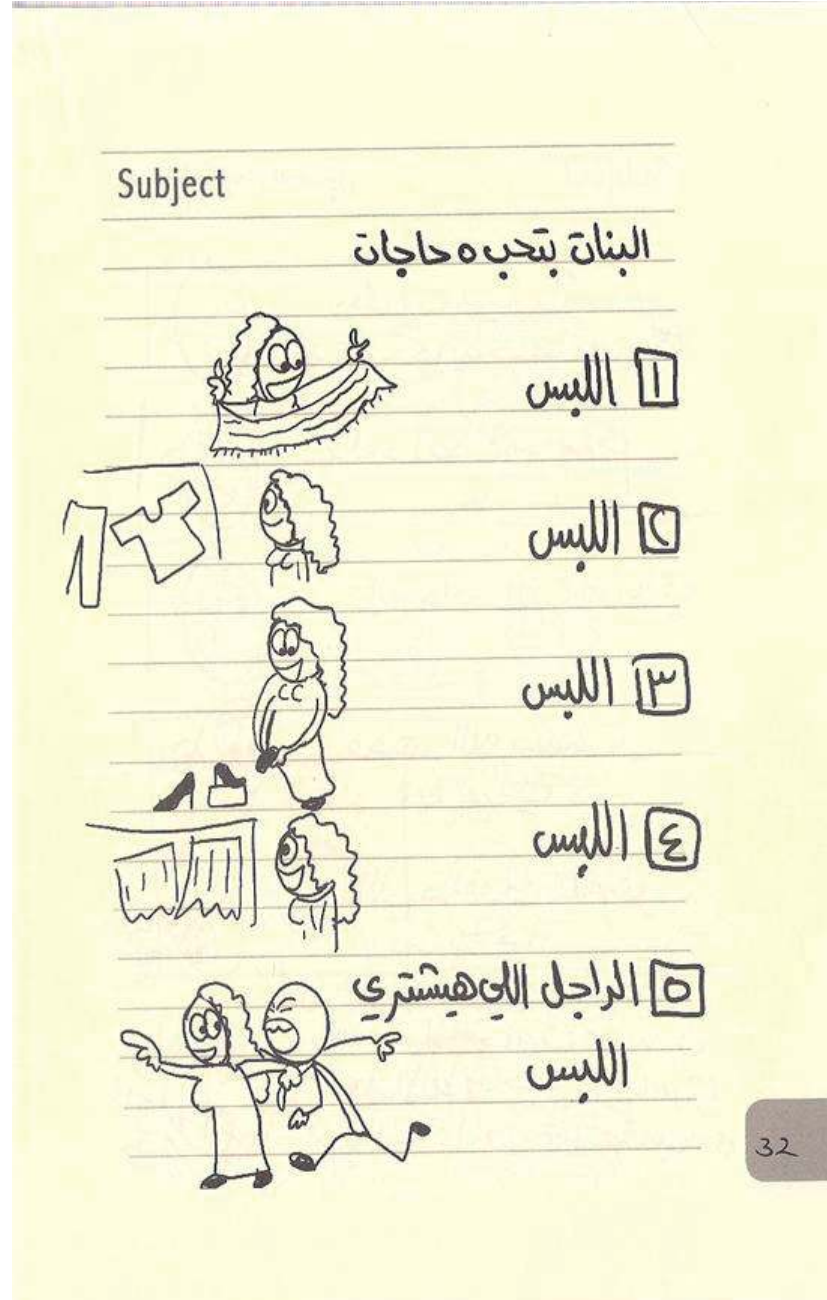 Subject
البنات بتحب ٥ حاجات
١ اللبس
٢ اللبس
٣ اللبس
٤ اللبس
٥ الراجل اللي هيشتري
اللبس
32